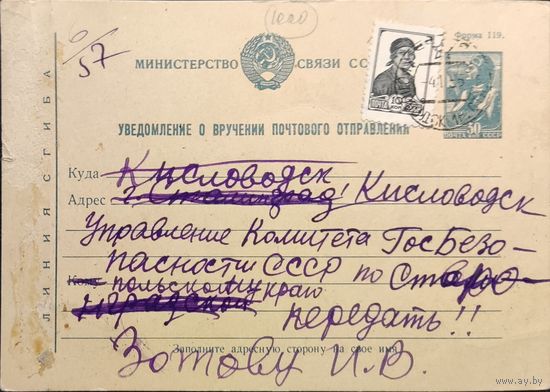 1020
0/57
Форма 119.
МИНИСТЕРСТВО СВЯЗИ СС
ПОЧТА
ПОЧТА СССР
30
УВЕДОМЛЕНИЕ О ВРУЧЕНИИ ПОЧТОВОГО ОТПРАВЛЕНИЯ
ЛИНИЯ СГИБА
Куда Кисловодск
Адрес г. Сталинград! Кисловодск
Управление Комитета ГосБезо-
пасности СССР по Ставро-
Кому польскому краю
передать!!
Заполните адресную сторону на свое имя
Зотову И.В.
www.ay.by